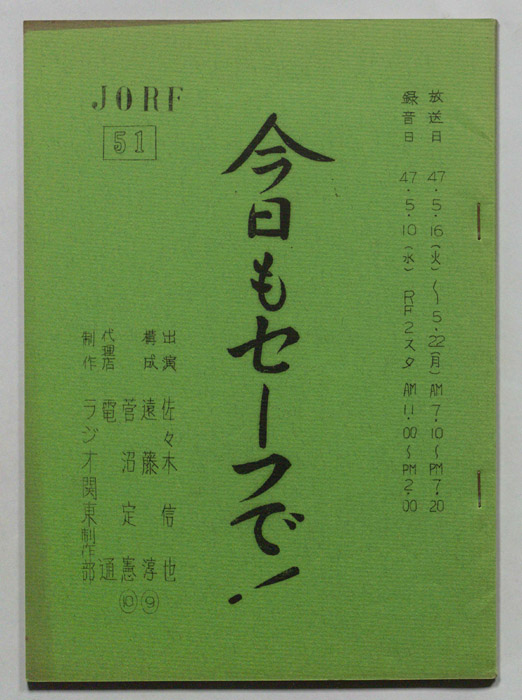 放送日 47.5.16(火)〜5.22(月) AM7.10〜PM7.20
録音日 47.5.10(水) RF2スタ AM11.00〜PM2.00
今日もセーフで!
JORF
51
出演 佐々木信也
構成 遠藤淳⑨
菅沼定憲⑩
代理店 電通
制作 ラジオ関東制作部